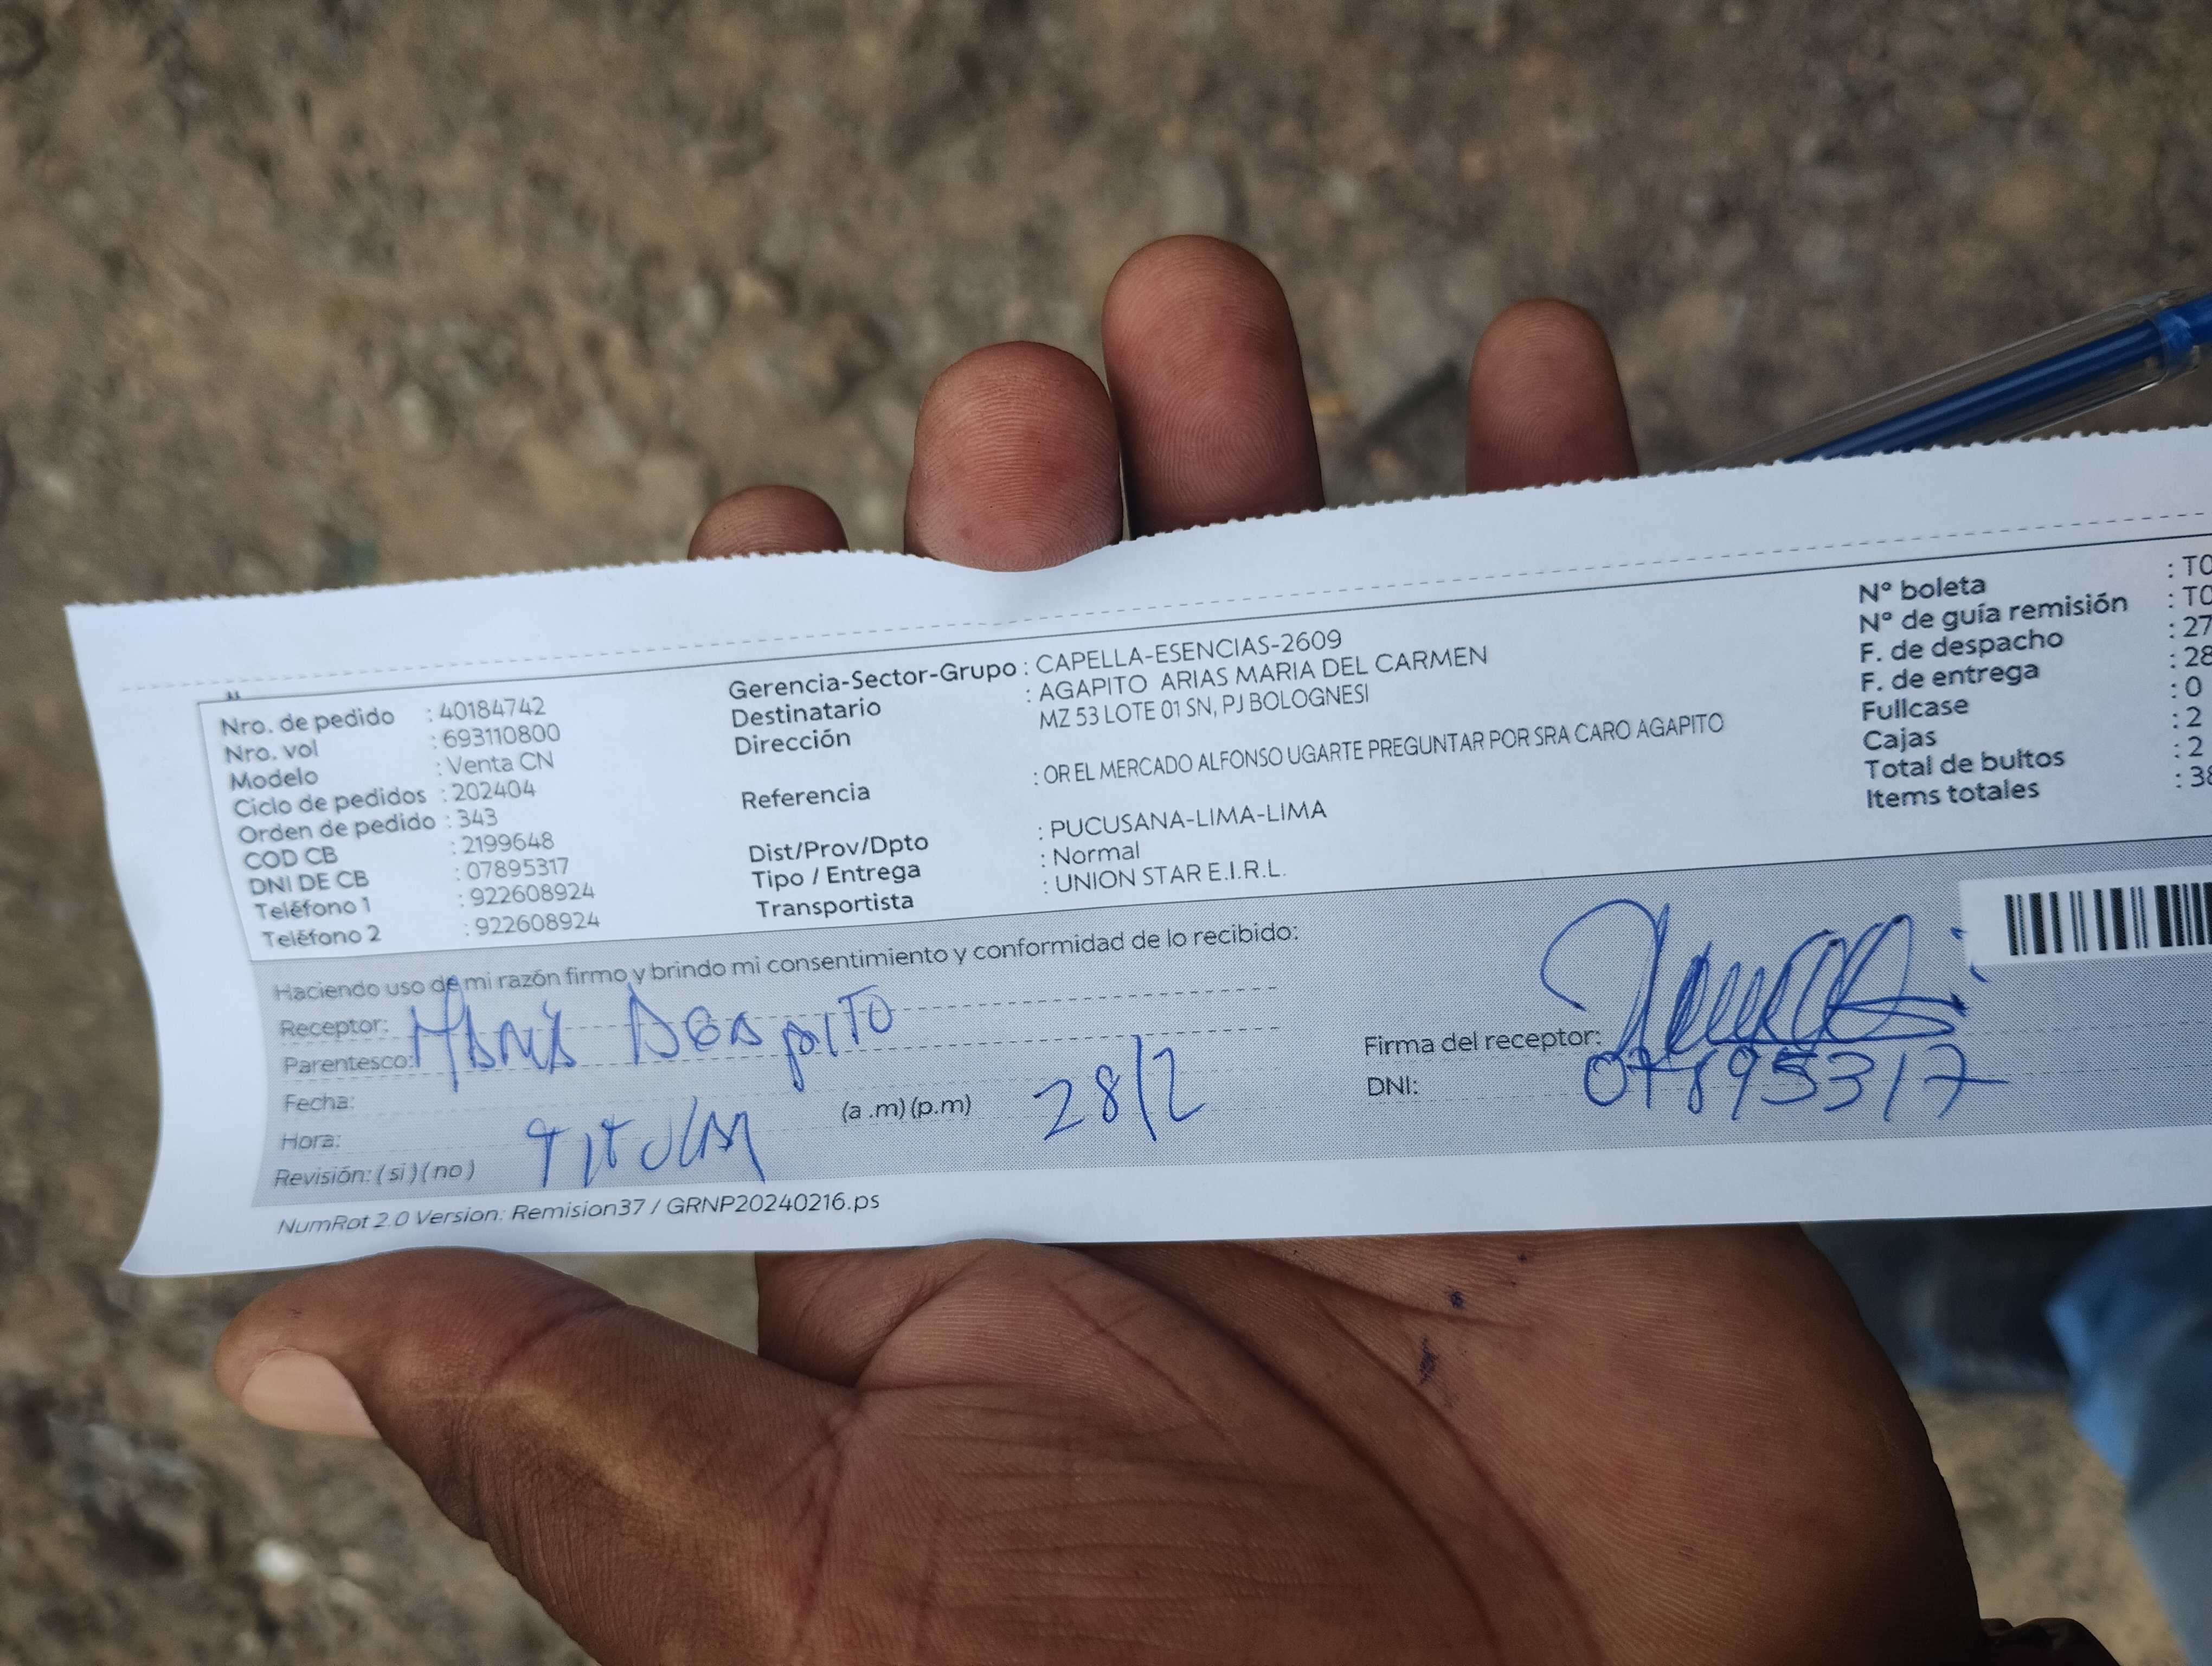 Nro. de pedido : 40184742
Nro. vol : 693110800
Modelo : Venta CN
Ciclo de pedidos : 202404
Orden de pedido : 343
COD CB : 2199648
DNI DE CB : 07895317
Teléfono 1 : 922608924
Teléfono 2 : 922608924
Gerencia-Sector-Grupo : CAPELLA-ESENCIAS-2609
Destinatario : AGAPITO ARIAS MARIA DEL CARMEN
Dirección MZ 53 LOTE 01 SN, PJ BOLOGNESI
Referencia : OR EL MERCADO ALFONSO UGARTE PREGUNTAR POR SRA CARO AGAPITO
Dist/Prov/Dpto : PUCUSANA-LIMA-LIMA
Tipo / Entrega : Normal
Transportista : UNION STAR E.I.R.L.
Nº boleta : T0
Nº de guía remisión : T0
F. de despacho : 27
F. de entrega : 28
Fullcase : 0
Cajas : 2
Total de bultos : 2
Items totales : 38
Haciendo uso de mi razón firmo y brindo mi consentimiento y conformidad de lo recibido:
Receptor:
Parentesco:
Fecha:
Hora: (a .m) (p.m) 28/2
Revisión: ( si ) ( no ) TITULAR
Firma del receptor:
DNI: 07895317
NumRot 2.0 Version: Remision37 / GRNP20240216.ps